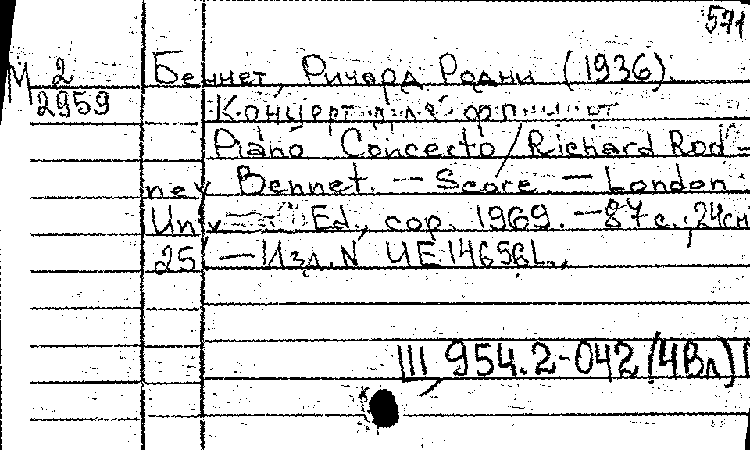 571
М 2 Беннет, Ричард Родни (1936).
2959 Концерт для фп.
Piano Concerto / Richard Rod-
ney Bennet. — Score. — London :
Univ. Ed., cop. 1969. — 87 с.; 24см
25 — Изд. N UE14656L.
Ш 954.2-042(4Вл)